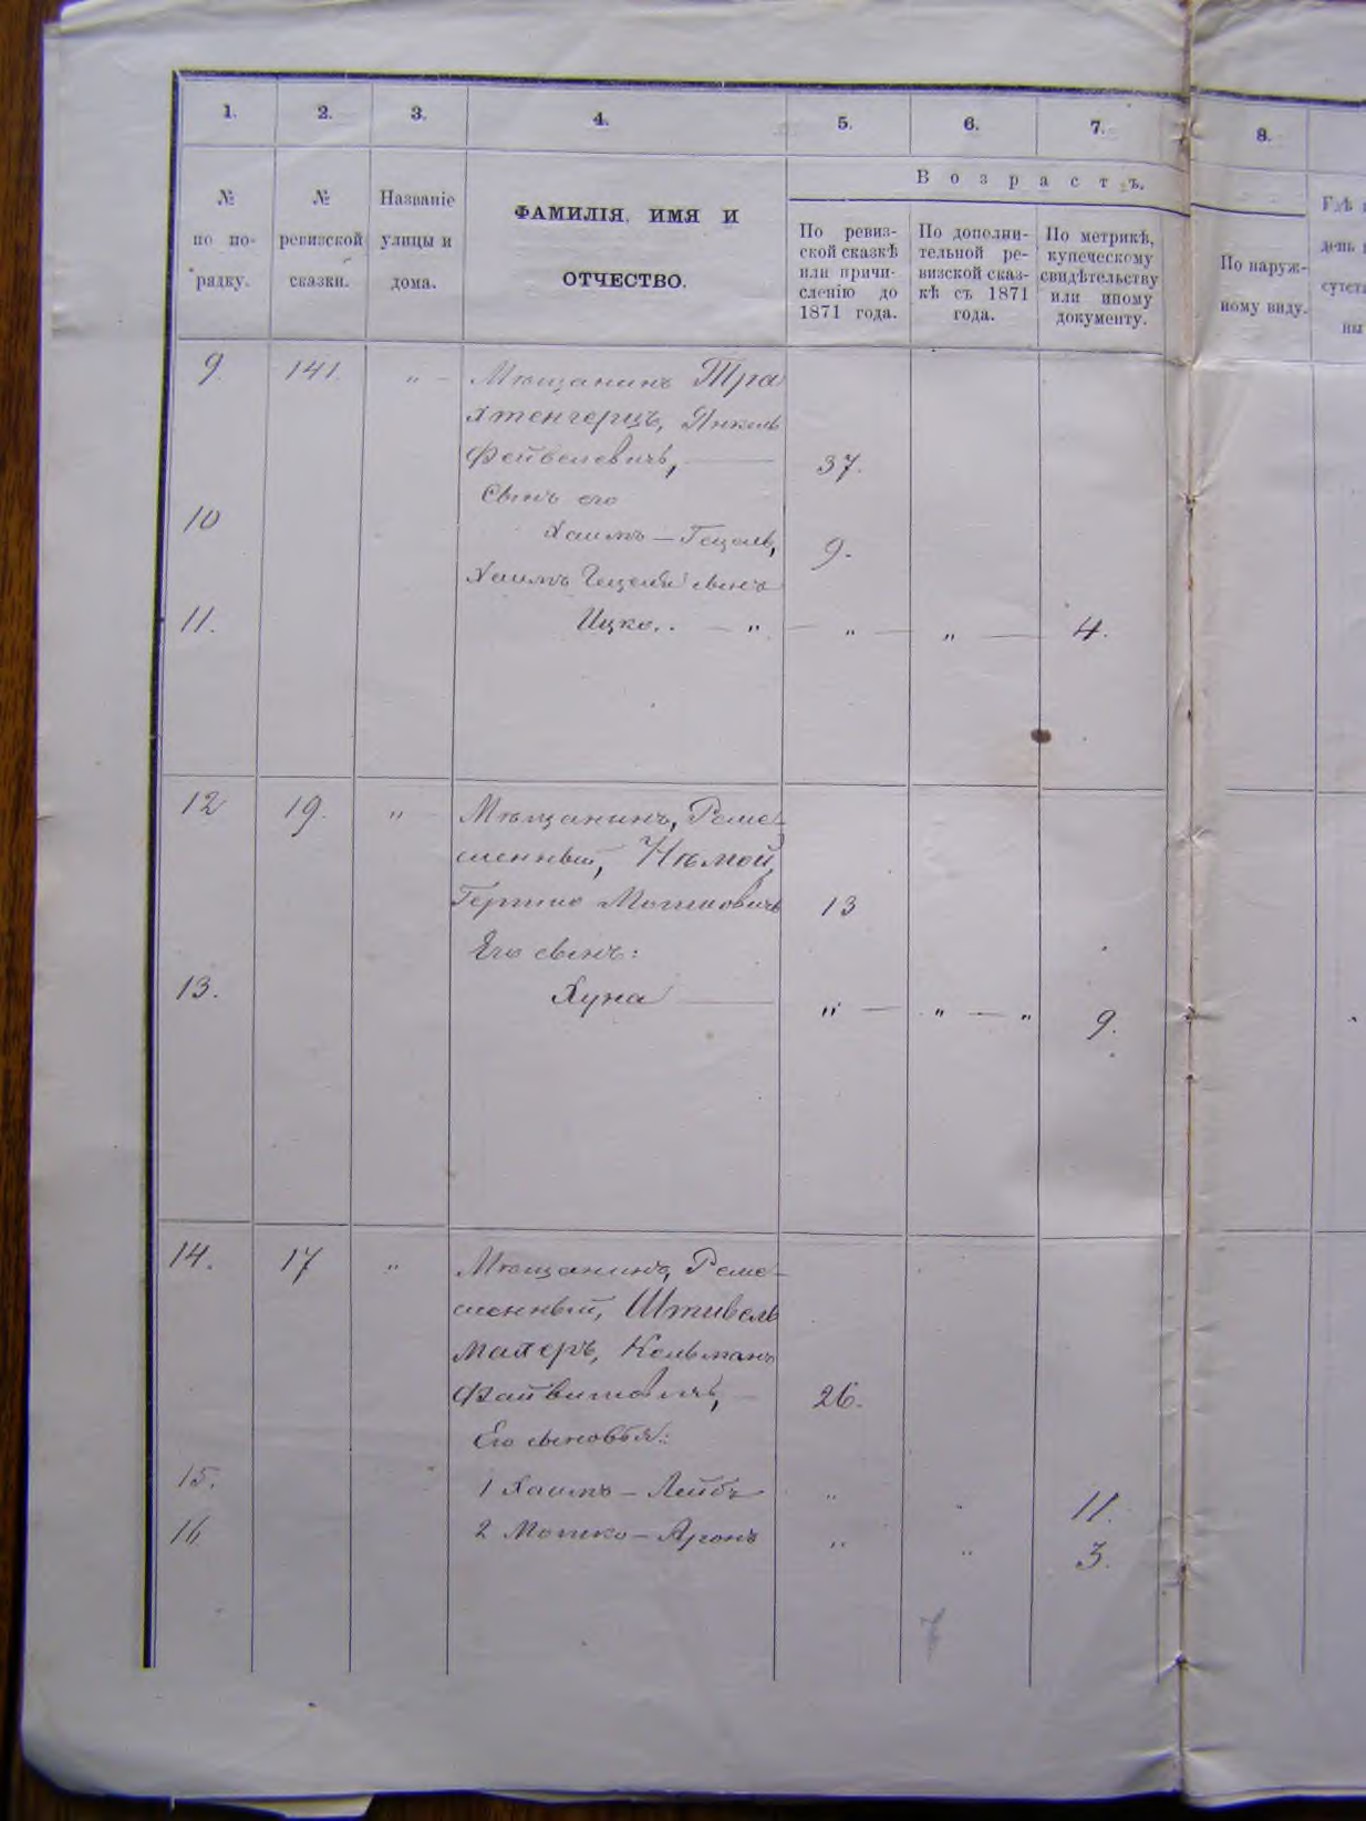 1. 2. 3. 4. 5. 6. 7. 8.
Возрастъ.
№ по по-
рядку.
№ ревизской
сказки.
Названіе
улицы и
дома.
ФАМИЛІЯ, ИМЯ И
ОТЧЕСТВО.
По ревиз-
ской сказкѣ
или причи-
сленію до
1871 года.
По дополни-
тельной ре-
визской сказ-
кѣ съ 1871
года.
По метрикѣ,
купеческому
свидѣтельству
или иному
документу.
По наруж-
ному виду.
Гдѣ
день
сутст
ны
9. 141. " Мѣщанинъ Тра
хтенгерцъ, Янкель
Фейвелевичъ, 37.
Сынъ его
10 Хаимъ — Гецель, 9.
Хаимъ Гецеля сынъ
11. Ицко.. — " — " — " — 4.
12 19. " Мѣщанинъ, Реме-
сленный, Нѣмой,
Гершко Мошковичъ 13
Его сынъ:
13. Хуна — " — " — " 9.
14. 17 " Мѣщанинъ, Реме-
сленный, Штивель
махеръ, Кельманъ
26.
Его сыновья:
15. 1 Хаимъ — Лейбъ " " 11.
16 2 Мошко — Аронъ " " 3.